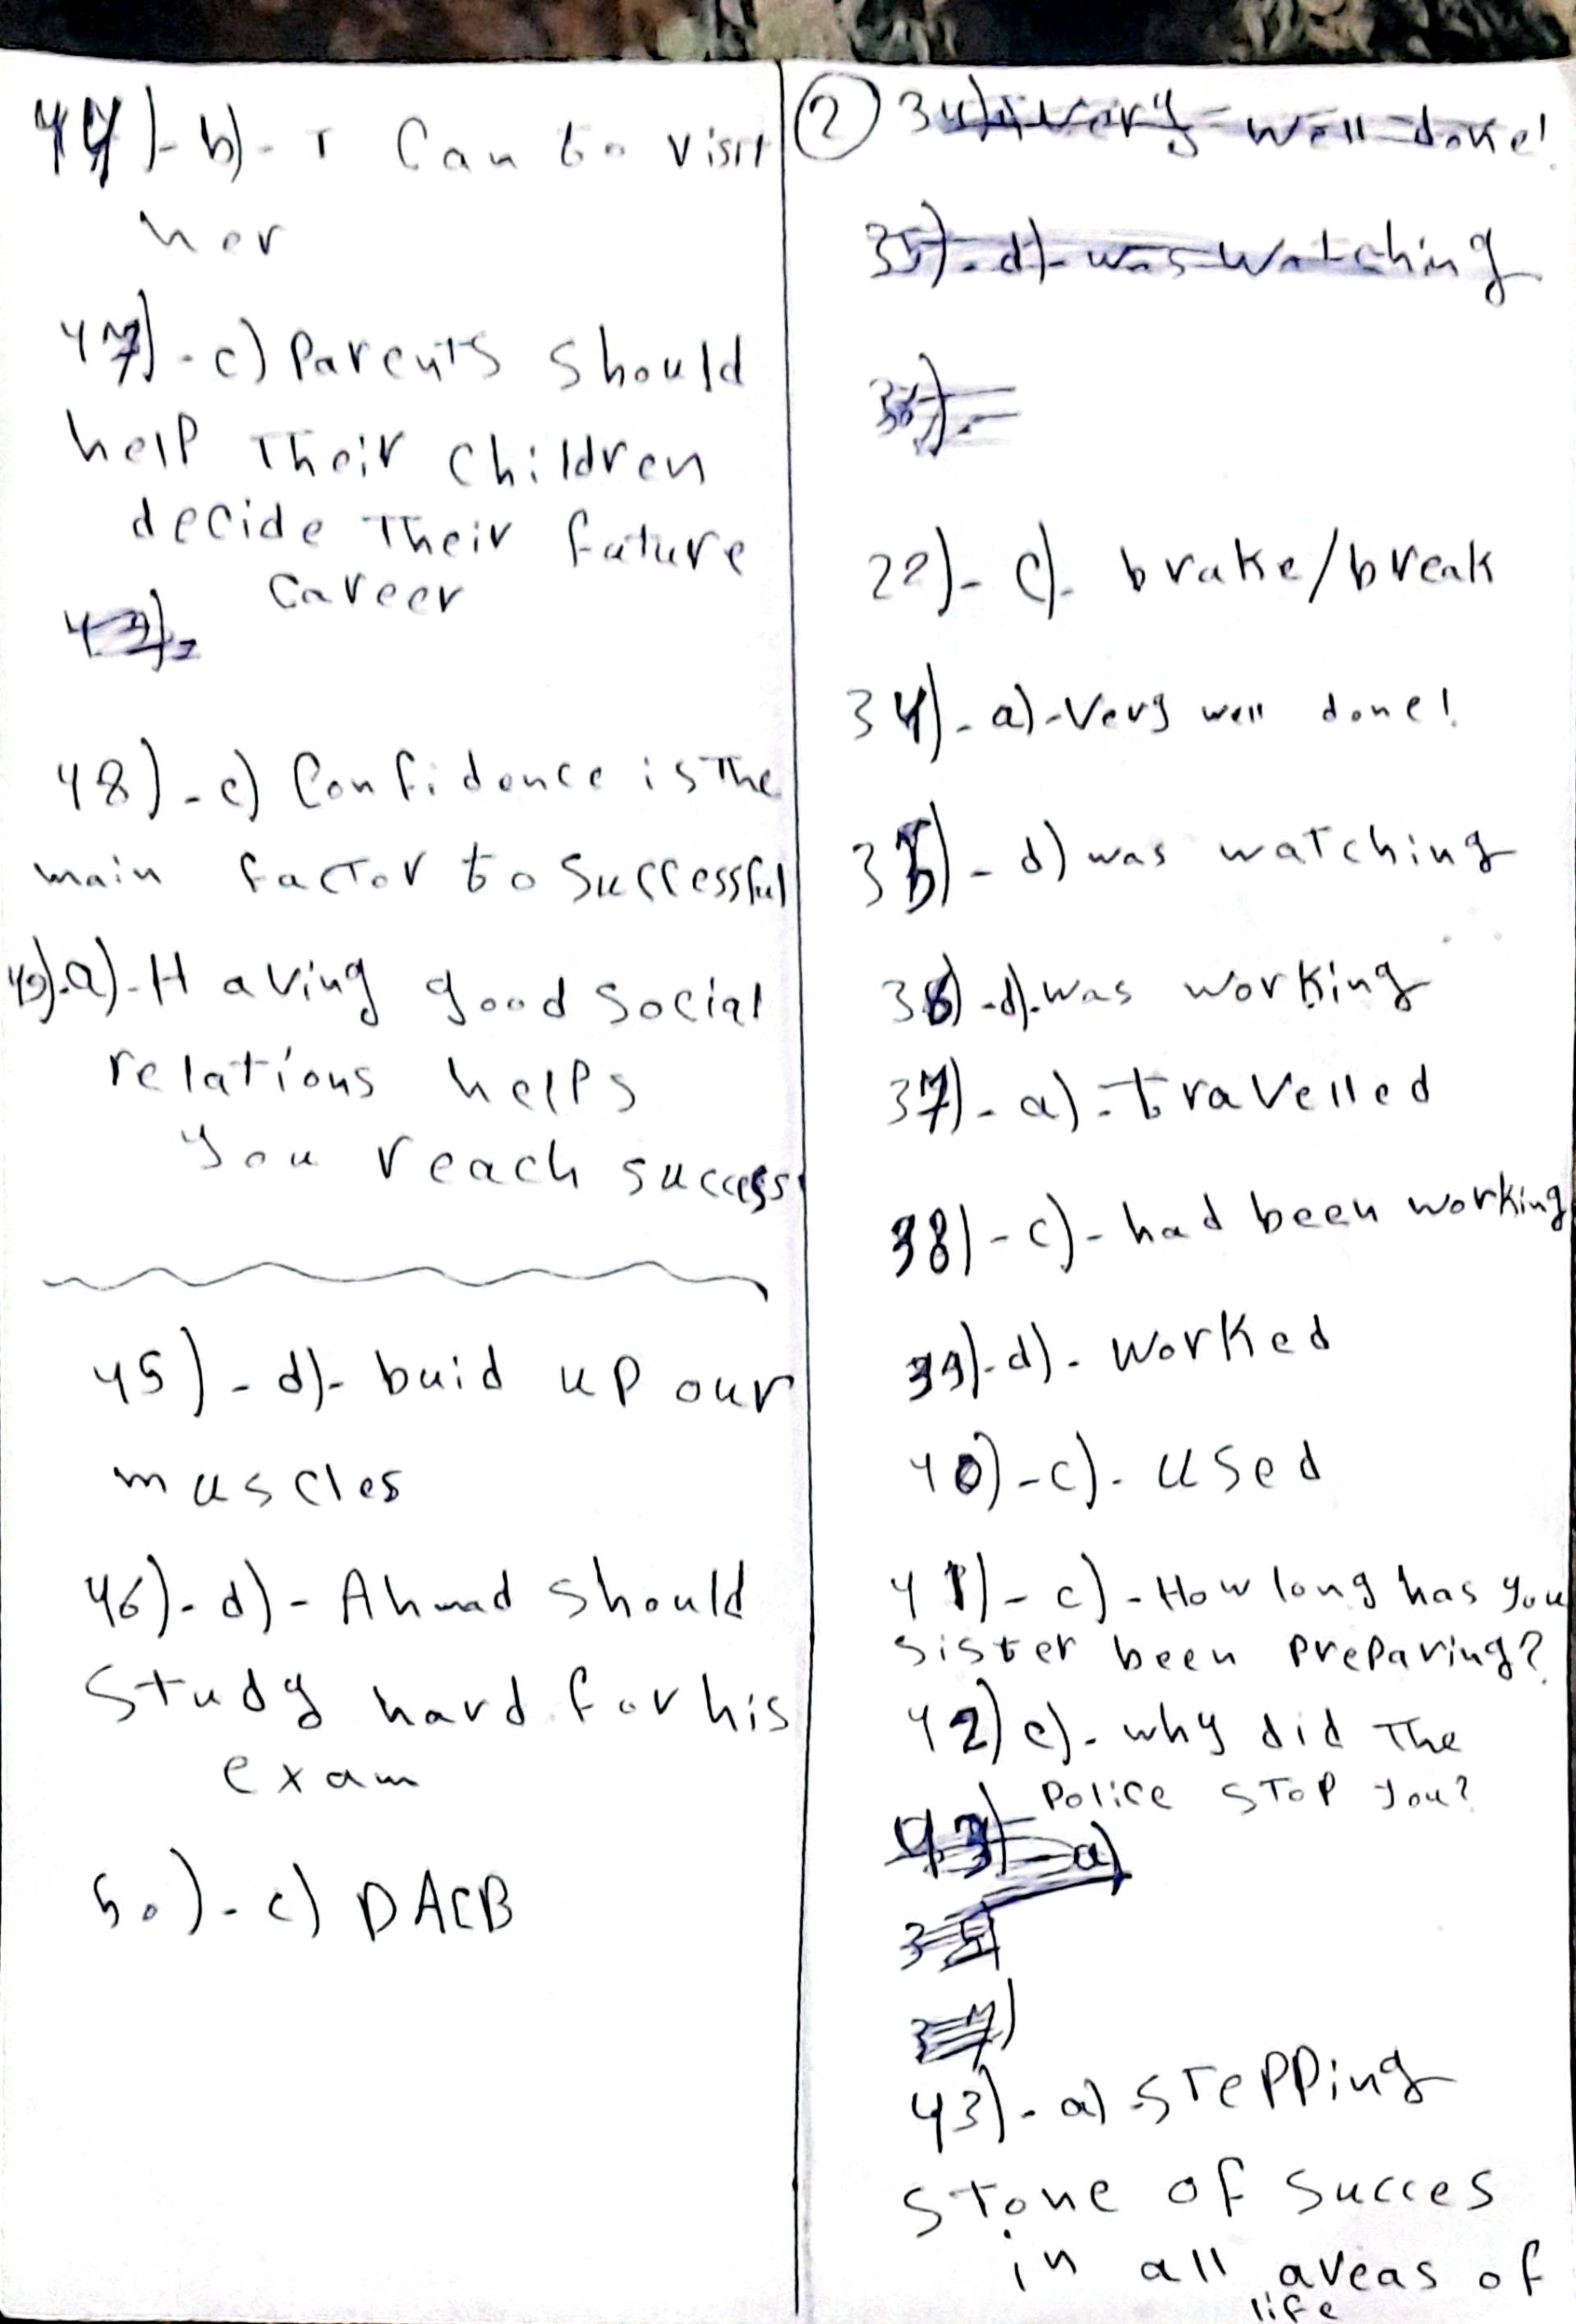 44)-b)- I Can to visit
her
47)-c) Parents should
help Their children
decide Their future
career
48)-c) Confidence is The
main factor to Successful
49).a)-Having good social
relations helps
you reach success
45)-d)- buid up our
muscles
46)-d)- Ahmad should
study hard for his
exam
50)-c) DACB
2
34) very well done!
35)-d)- was watching
36)-
22)-c)- brake/break
34)-a)-Very well done!
35)-d) was watching
36)-d).was working
37)-a)-travelled
38)-c)-had been working
39)-d)- worked
40)-c)- used
41)-c)-How long has you
sister been preparing?
42) c)- why did The
Police STOP you?
43)-a)
35)
37)
43)-a) stepping
stone of succes
in all areas of
life